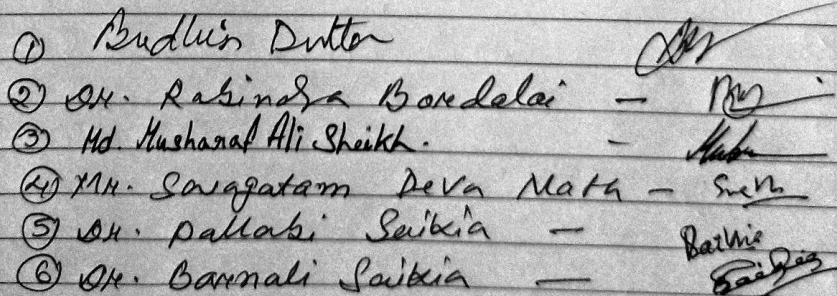 ① Budhin Dutta
② Dr. Rabindra Bordalai —
③ Md. Musharaf Ali Sheikh. -
④ Mr. Swagatam Deva Nath —
⑤ Dr. Pallabi Saikia —
⑥ Dr. Barnali Saikia — Saikia